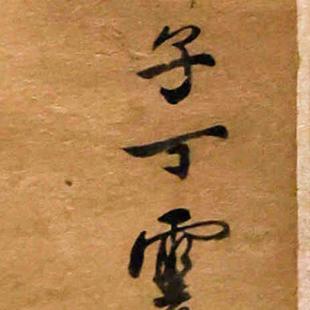 子丁雲